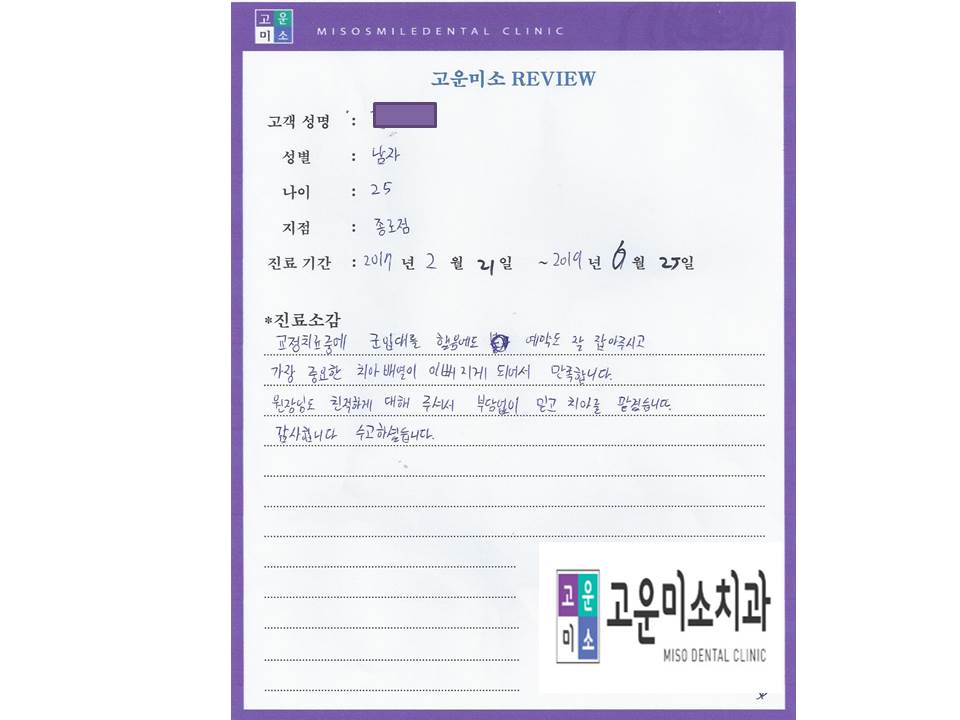 고운
미소
MISOSMILEDENTAL CLINIC
고운미소 REVIEW
고객 성명 :
성별 : 남자
나이 : 25
지점 : 종로점
진료 기간 : 2017 년 2 월 21 일 ~ 2019 년 6 월 25 일
*진료소감
교정치료중에 군입대를 했음에도 예약도 잘 잡아주시고
가장 중요한 치아배열이 이뻐지게 되어서 만족합니다.
원장님도 친절하게 대해 주셔서 부담없이 믿고 치아를 맡겼습니다.
감사합니다 수고하셨습니다.
고운
미소
고운미소치과
MISO DENTAL CLINIC